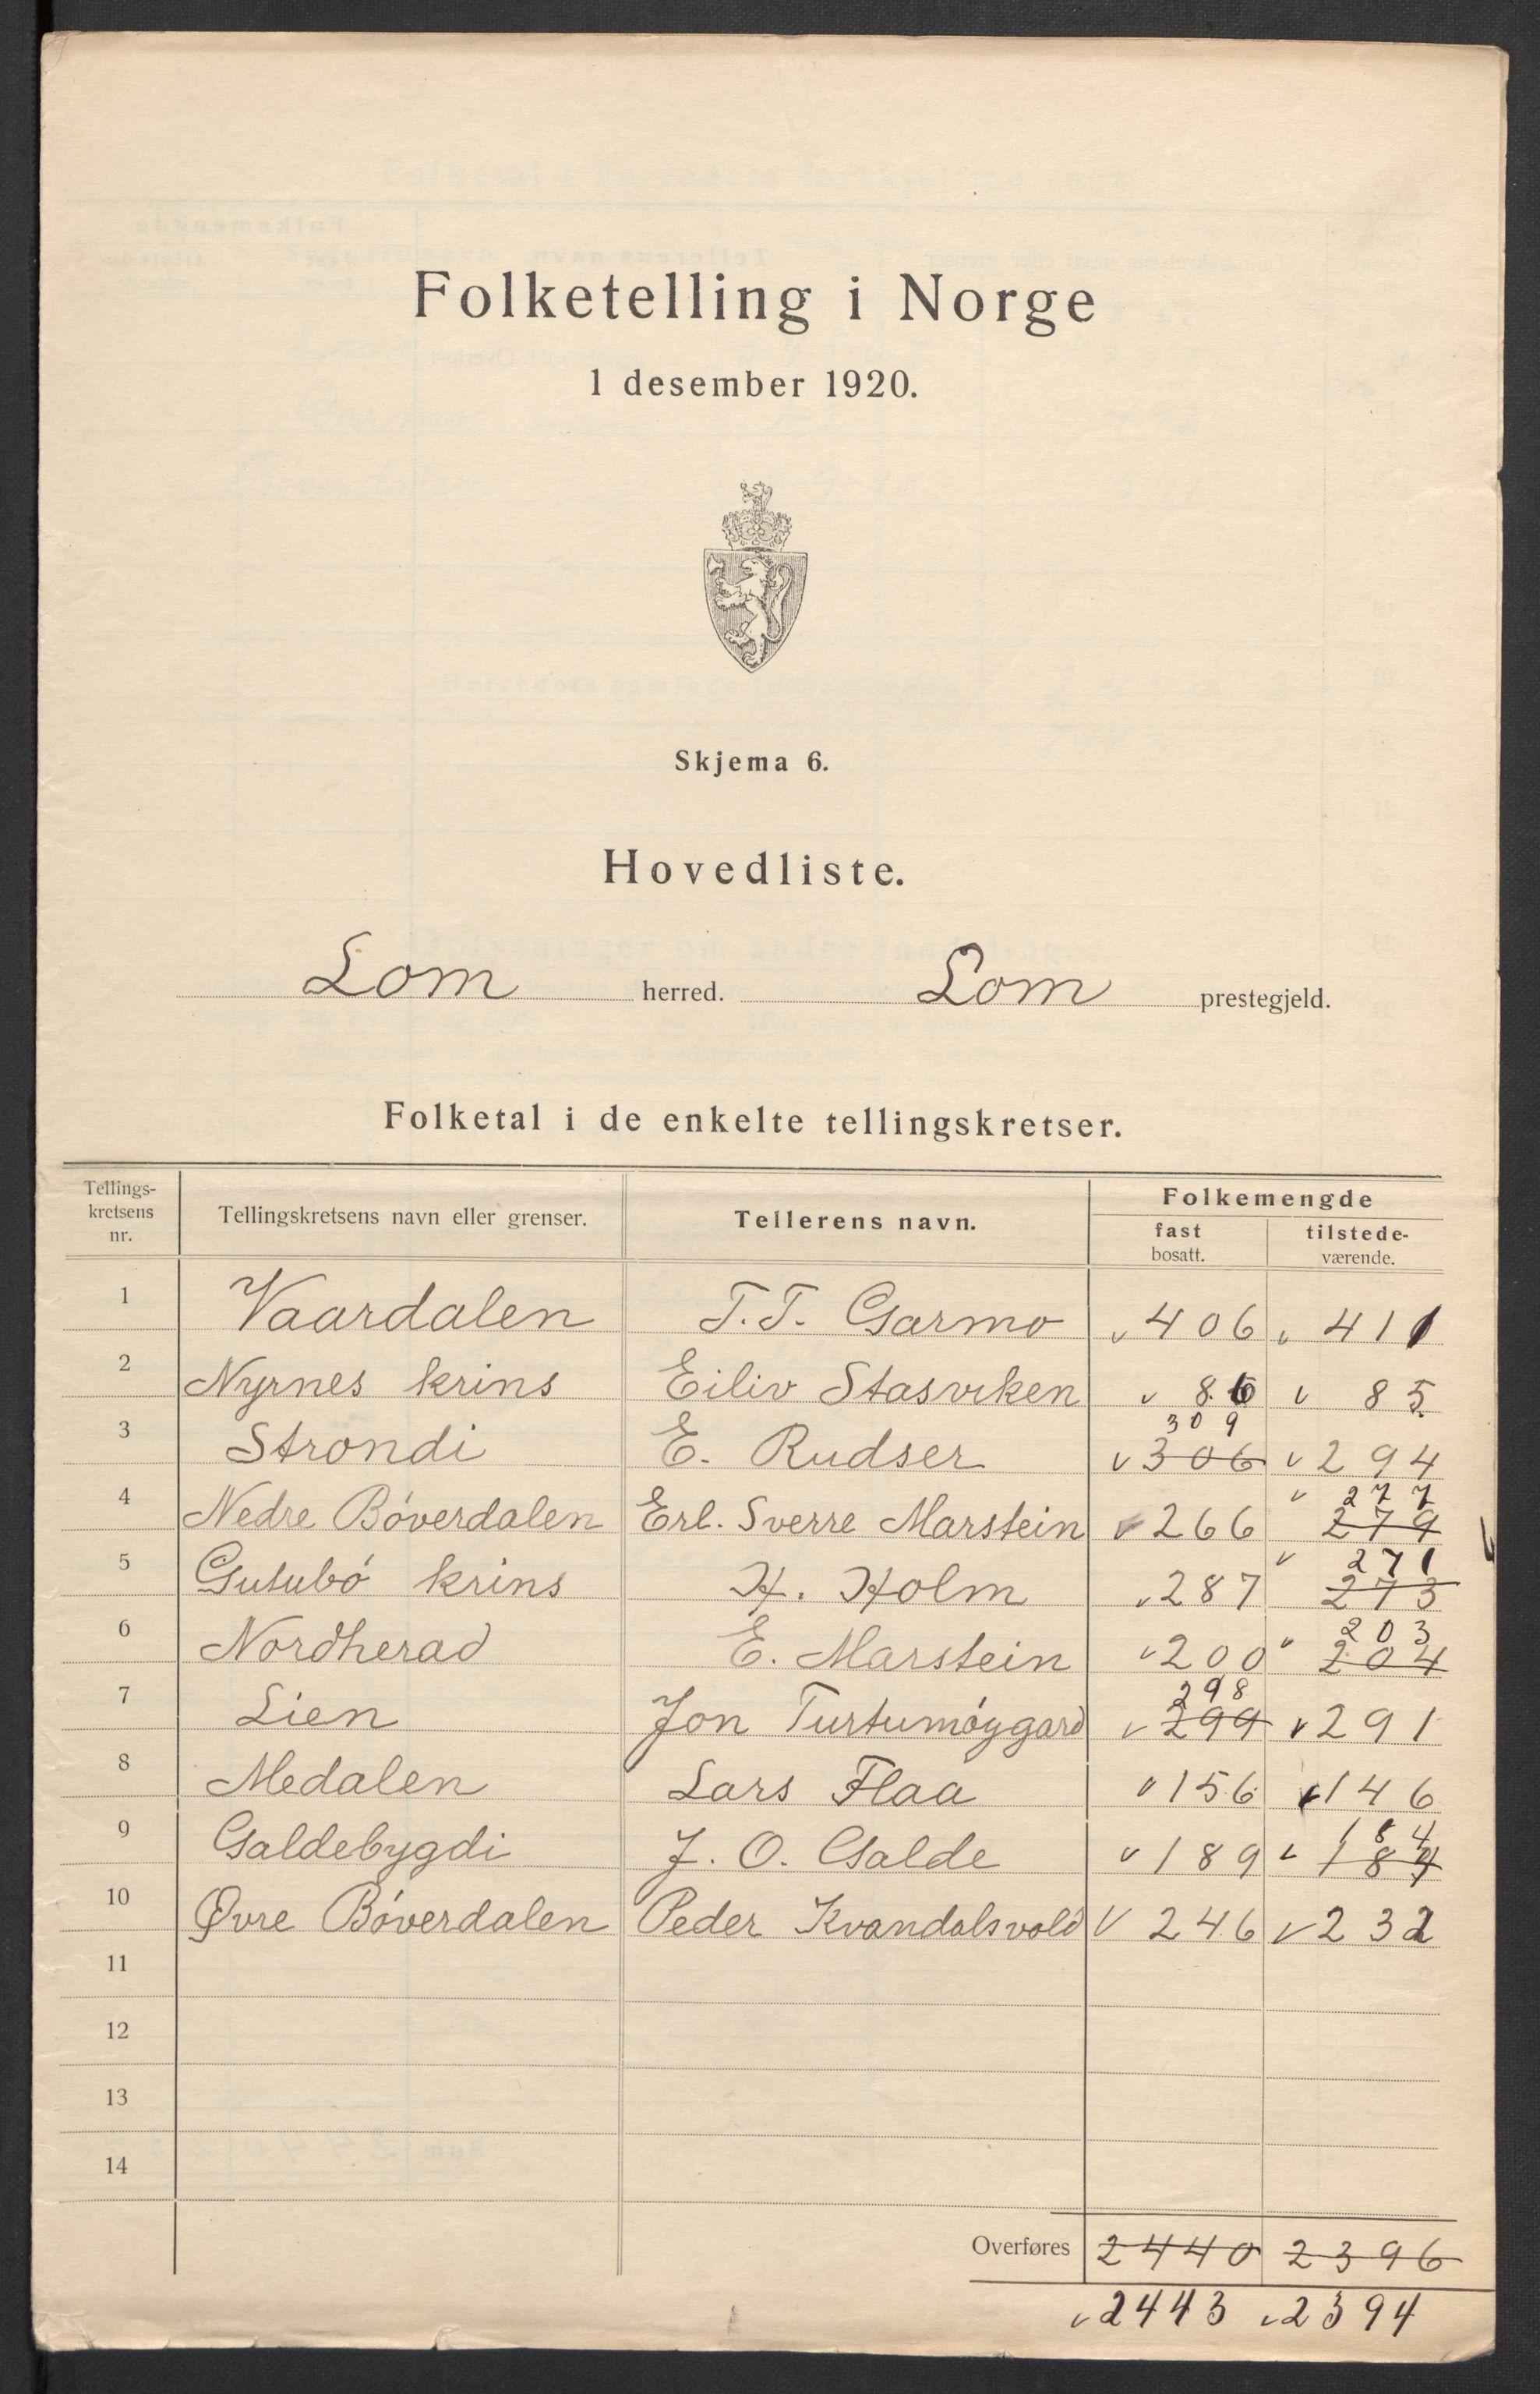 Folketelling i Norge
1 desember 1920.
Skjema 6.
Hovedliste.
Lom herred. Lom prestegjeld.
Folketal i de enkelte tellingskretser.
Tellings-
kretsens
nr.
Tellingskretsens navn eller grenser.
Tellerens navn.
Folkemengde
fast
bosatt.
tilstede-
værende.
1 Vaardalen T.T. Garmo 406 411
2 Nyrnes krins Eiliv Stasviken 86 85
309
3 Strondi E. Rudser 306 294
277
4 Nedre Bóverdalen Erl. Sverre Marstein 266 279
271
5 Gutubó krins H. Holm 287 273
203
6 Nordherad E. Marstein 200 204
298
7 Lien Jon Turtumóygard 299 291
8 Medalen Lars Flaa 156 146
184
9 Galdebygdi J. O. Galde 189
10 Øvre Bóverdalen Peder Kvandalsvold 246 232
11
12
13
14
Overføres 2440 2396
2443 2394